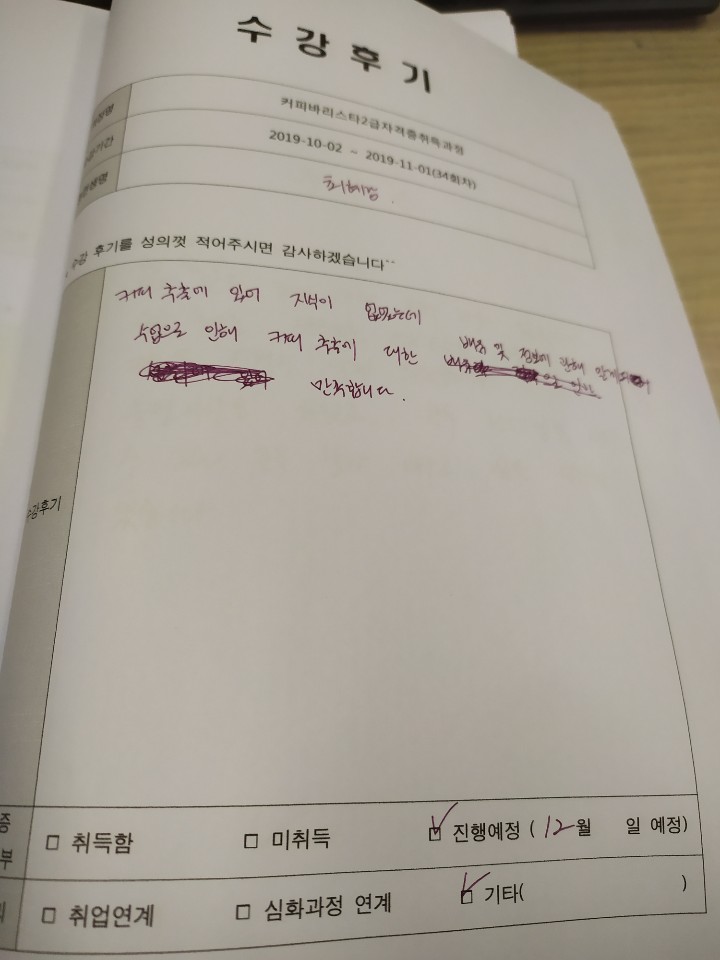 수강후기
커피바리스타2급자격증취득과정
기간
2019-10-02 ~ 2019-11-01(34회차)
생명
수강 후기를 성의껏 적어주시면 감사하겠습니다^^
수강후기
커피 추출에 있어 지식이 없었는데
수업으로 인해 커피 추출에 대한 배움 및 정보에 관해 알게되어
만족합니다.
증
부
□ 취득함 □ 미취득 ☑ 진행예정 ( 12월 일 예정)
□ 취업연계 □ 심화과정 연계 ☑ 기타( )